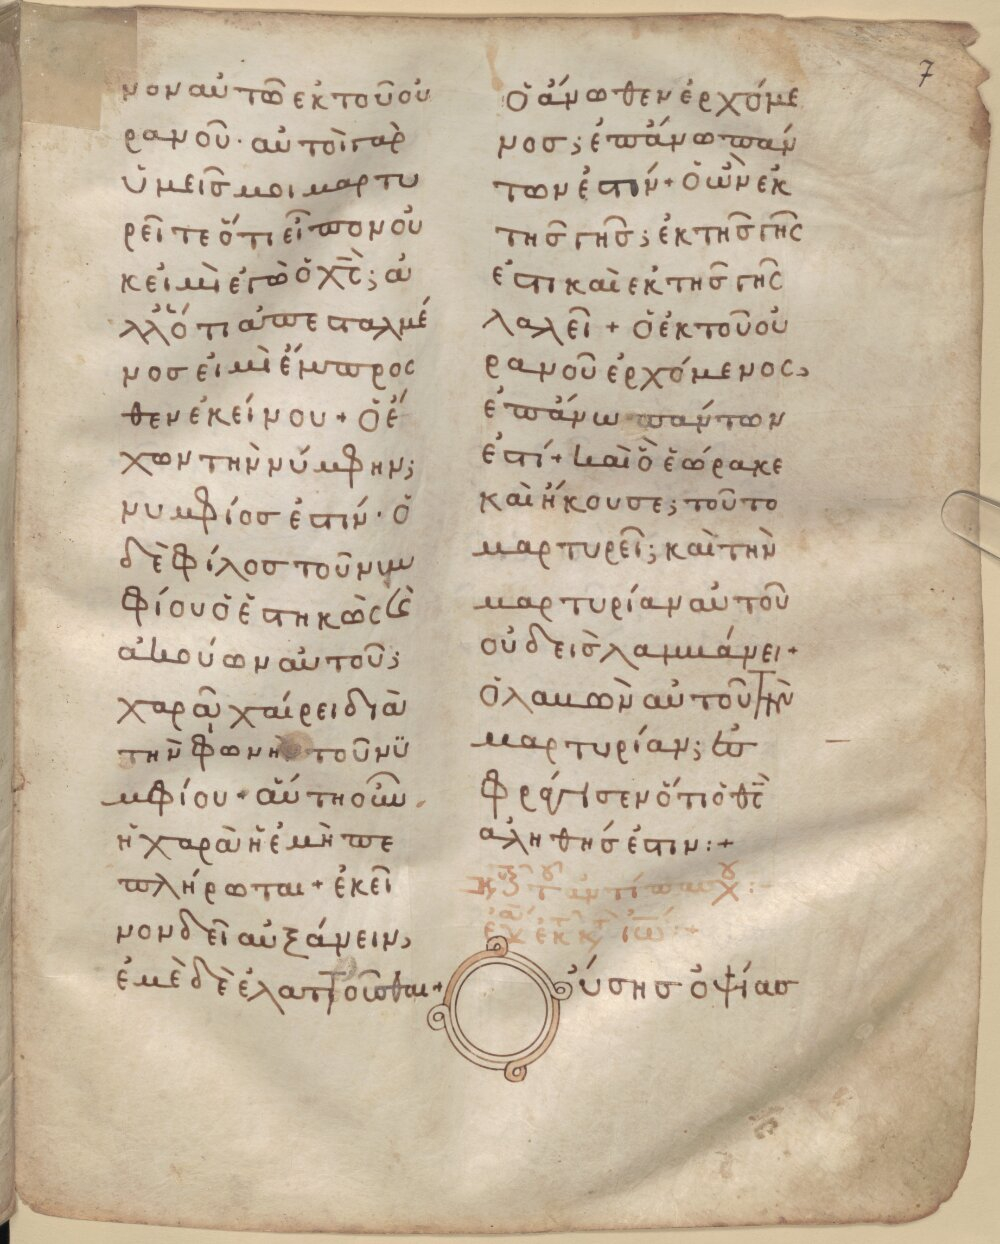 7
νον αὐτῶ ἐκ τοῦ οὐ
ρανοῦ· αὐτοὶ γὰρ
ὑμεῖς μοι μαρτυ
ρεῖτε ὅτι εἶπον οὐ
κ εἰμὶ ἐγὼ ὁ χς̅; ἀ
λλ' ὅτι ἀπεσταλμέ
νος εἰμὶ ἔμπροσ
θεν ἐκείνου + Ὁ ἔ
χων τὴν νύμφην;
νυμφίος ἐστίν· ὁ
δὲ φίλος τοῦ νυμ
φίου ὁ ἑστηκὼς κὲ
ἀκούων αὐτοῦ;
χαρᾶ χαίρει διὰ
τὴν φωνὴν τοῦ νυ
μφίου + αὕτη οὖν
ἡ χαρὰ ἡ ἐμὴ πε
πλήρωται + ἐκεῖ
νον δεῖ αὐξάνειν,
ἐμὲ δὲ ἐλαττοῦσθαι +
Ὁ ἄνωθεν ἐρχόμε
νος; ἐπάνω πάν
των ἐστίν + Ὁ ὢν ἐκ
τῆς γῆς; ἐκ τῆς γῆς
ἐστι καὶ ἐκ τῆς γῆς
λαλεῖ + Ὁ ἐκ τοῦ οὐ
ρανοῦ ἐρχόμενος,
ἐπάνω πάντων
ἐστί + καὶ ὃ ἑώρακε
καὶ ἤκουσε; τοῦτο
μαρτυρεῖ; καὶ τὴν
μαρτυρίαν αὐτοῦ
οὐδεὶς λαμβάνει +
Ὁ λαβὼν αὐτοῦ τὴν
μαρτυρίαν; ἐσ
φράγισεν ὅτι ὁ θς̅
ἀληθής ἐστιν: +
ἀντίπασχ:
ἐκ ιω: +
Οὔσης ὀψίας